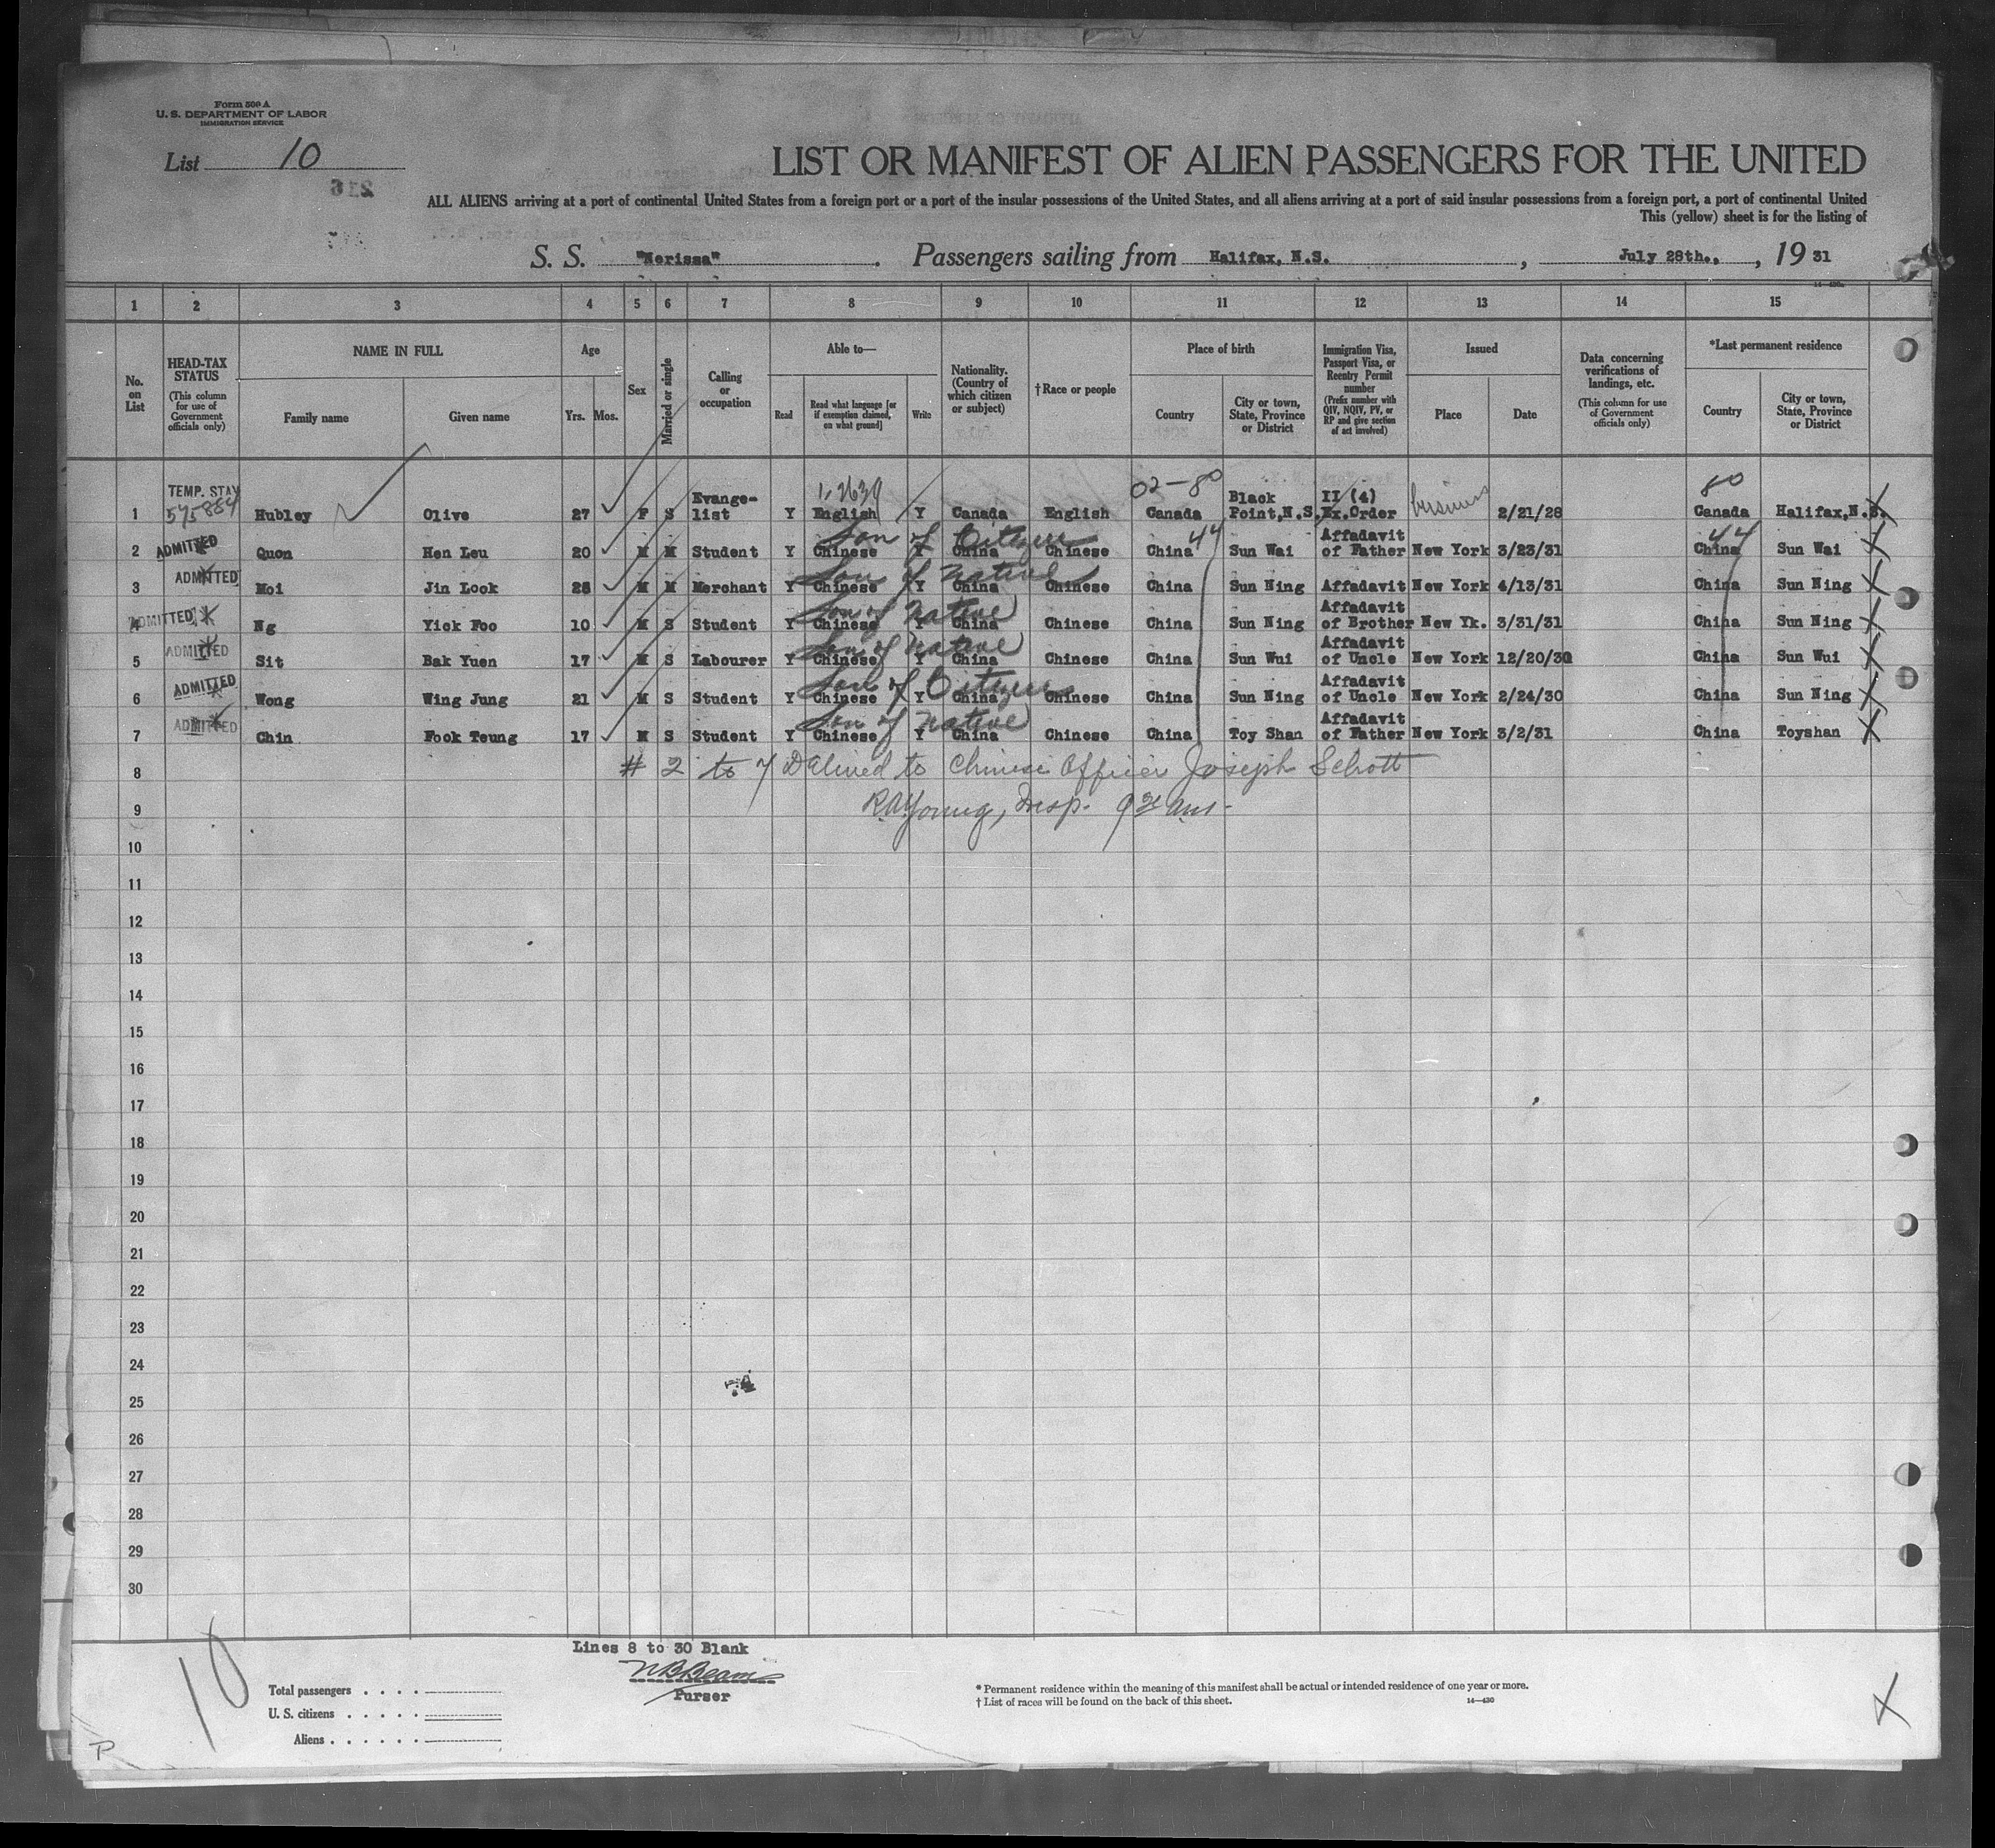 Form 500 A
U. S. DEPARTMENT OF LABOR
IMMIGRATION SERVICE
List 10
216
LIST OR MANIFEST OF ALIEN PASSENGERS FOR THE UNITED
ALL ALIENS arriving at a port of continental United States from a foreign port or a port of the insular possessions of the United States, and all aliens arriving at a port of said insular possessions from a foreign port, a port of continental United
This (yellow) sheet is for the listing of
S. S. "Nerissa" . Passengers sailing from Halifax, N.S. , July 28th., , 19 31
1 2 3 4 5 6 7 8 9 10 11 12 13 14 15
No. on List
HEAD-TAX STATUS (This column for use of Government officials only)
NAME IN FULL
Family name Given name
Age
Yrs. Mos.
Sex
Married or single
Calling or occupation
Able to—
Read
Read what language [or if exemption claimed, on what ground]
Write
Nationality. (Country of which citizen or subject)
†Race or people
Place of birth
Country
City or town, State, Province or District
Immigration Visa, Passport Visa, or Reentry Permit number (Prefix number with QIV, NQIV, PV, or RP and give section of act involved)
Issued
Place Date
Data concerning verifications of landings, etc. (This column for use of Government officials only)
*Last permanent residence
Country
City or town, State, Province or District
TEMP. STAY 02-80 80
1 575884 Hubley Olive 27 F S Evange-list Y English Y Canada English Canada Black Point,N.S. II (4) Ex.Order business 2/21/28 Canada Halifax,N.S.
Son of Citizen 44 44
2 ADMITTED Quon Hen Leu 20 M M Student Y Chinese Y China Chinese China Sun Wai Affadavit of Father New York 3/23/31 China Sun Wai
Son of Native
3 ADMITTED Moi Jin Look 28 M M Merchant Y Chinese Y China Chinese China Sun Ning Affadavit New York 4/13/31 China Sun Ning
Son of Native
4 ADMITTED Ng Yick Foo 10 M S Student Y Chinese Y China Chinese China Sun Ning Affadavit of Brother New Yk. 3/31/31 China Sun Ning
Son of Native
5 ADMITTED Sit Bak Yuen 17 M S Labourer Y Chinese Y China Chinese China Sun Wui Affadavit of Uncle New York 12/20/30 China Sun Wui
Son of Citizen
6 ADMITTED Wong Wing Jung 21 M S Student Y Chinese Y China Chinese China Sun Ning Affadavit of Uncle New York 2/24/30 China Sun Ning
Son of Native
7 ADMITTED Chin Fook Teung 17 M S Student Y Chinese Y China Chinese China Toy Shan Affadavit of Father New York 3/2/31 China Toyshan
8 # 2 to 7 to Chinese Officer Joseph Schott
9 RAYoung, Insp.
10
11
12
13
14
15
16
17
18
19
20
21
22
23
24
25
26
27
28
29
30
Lines 8 to 30 Blank
10
Purser
Total passengers . . . .
U. S. citizens . . . . .
Aliens . . . . . .
* Permanent residence within the meaning of this manifest shall be actual or intended residence of one year or more.
† List of races will be found on the back of this sheet.
14—430
P